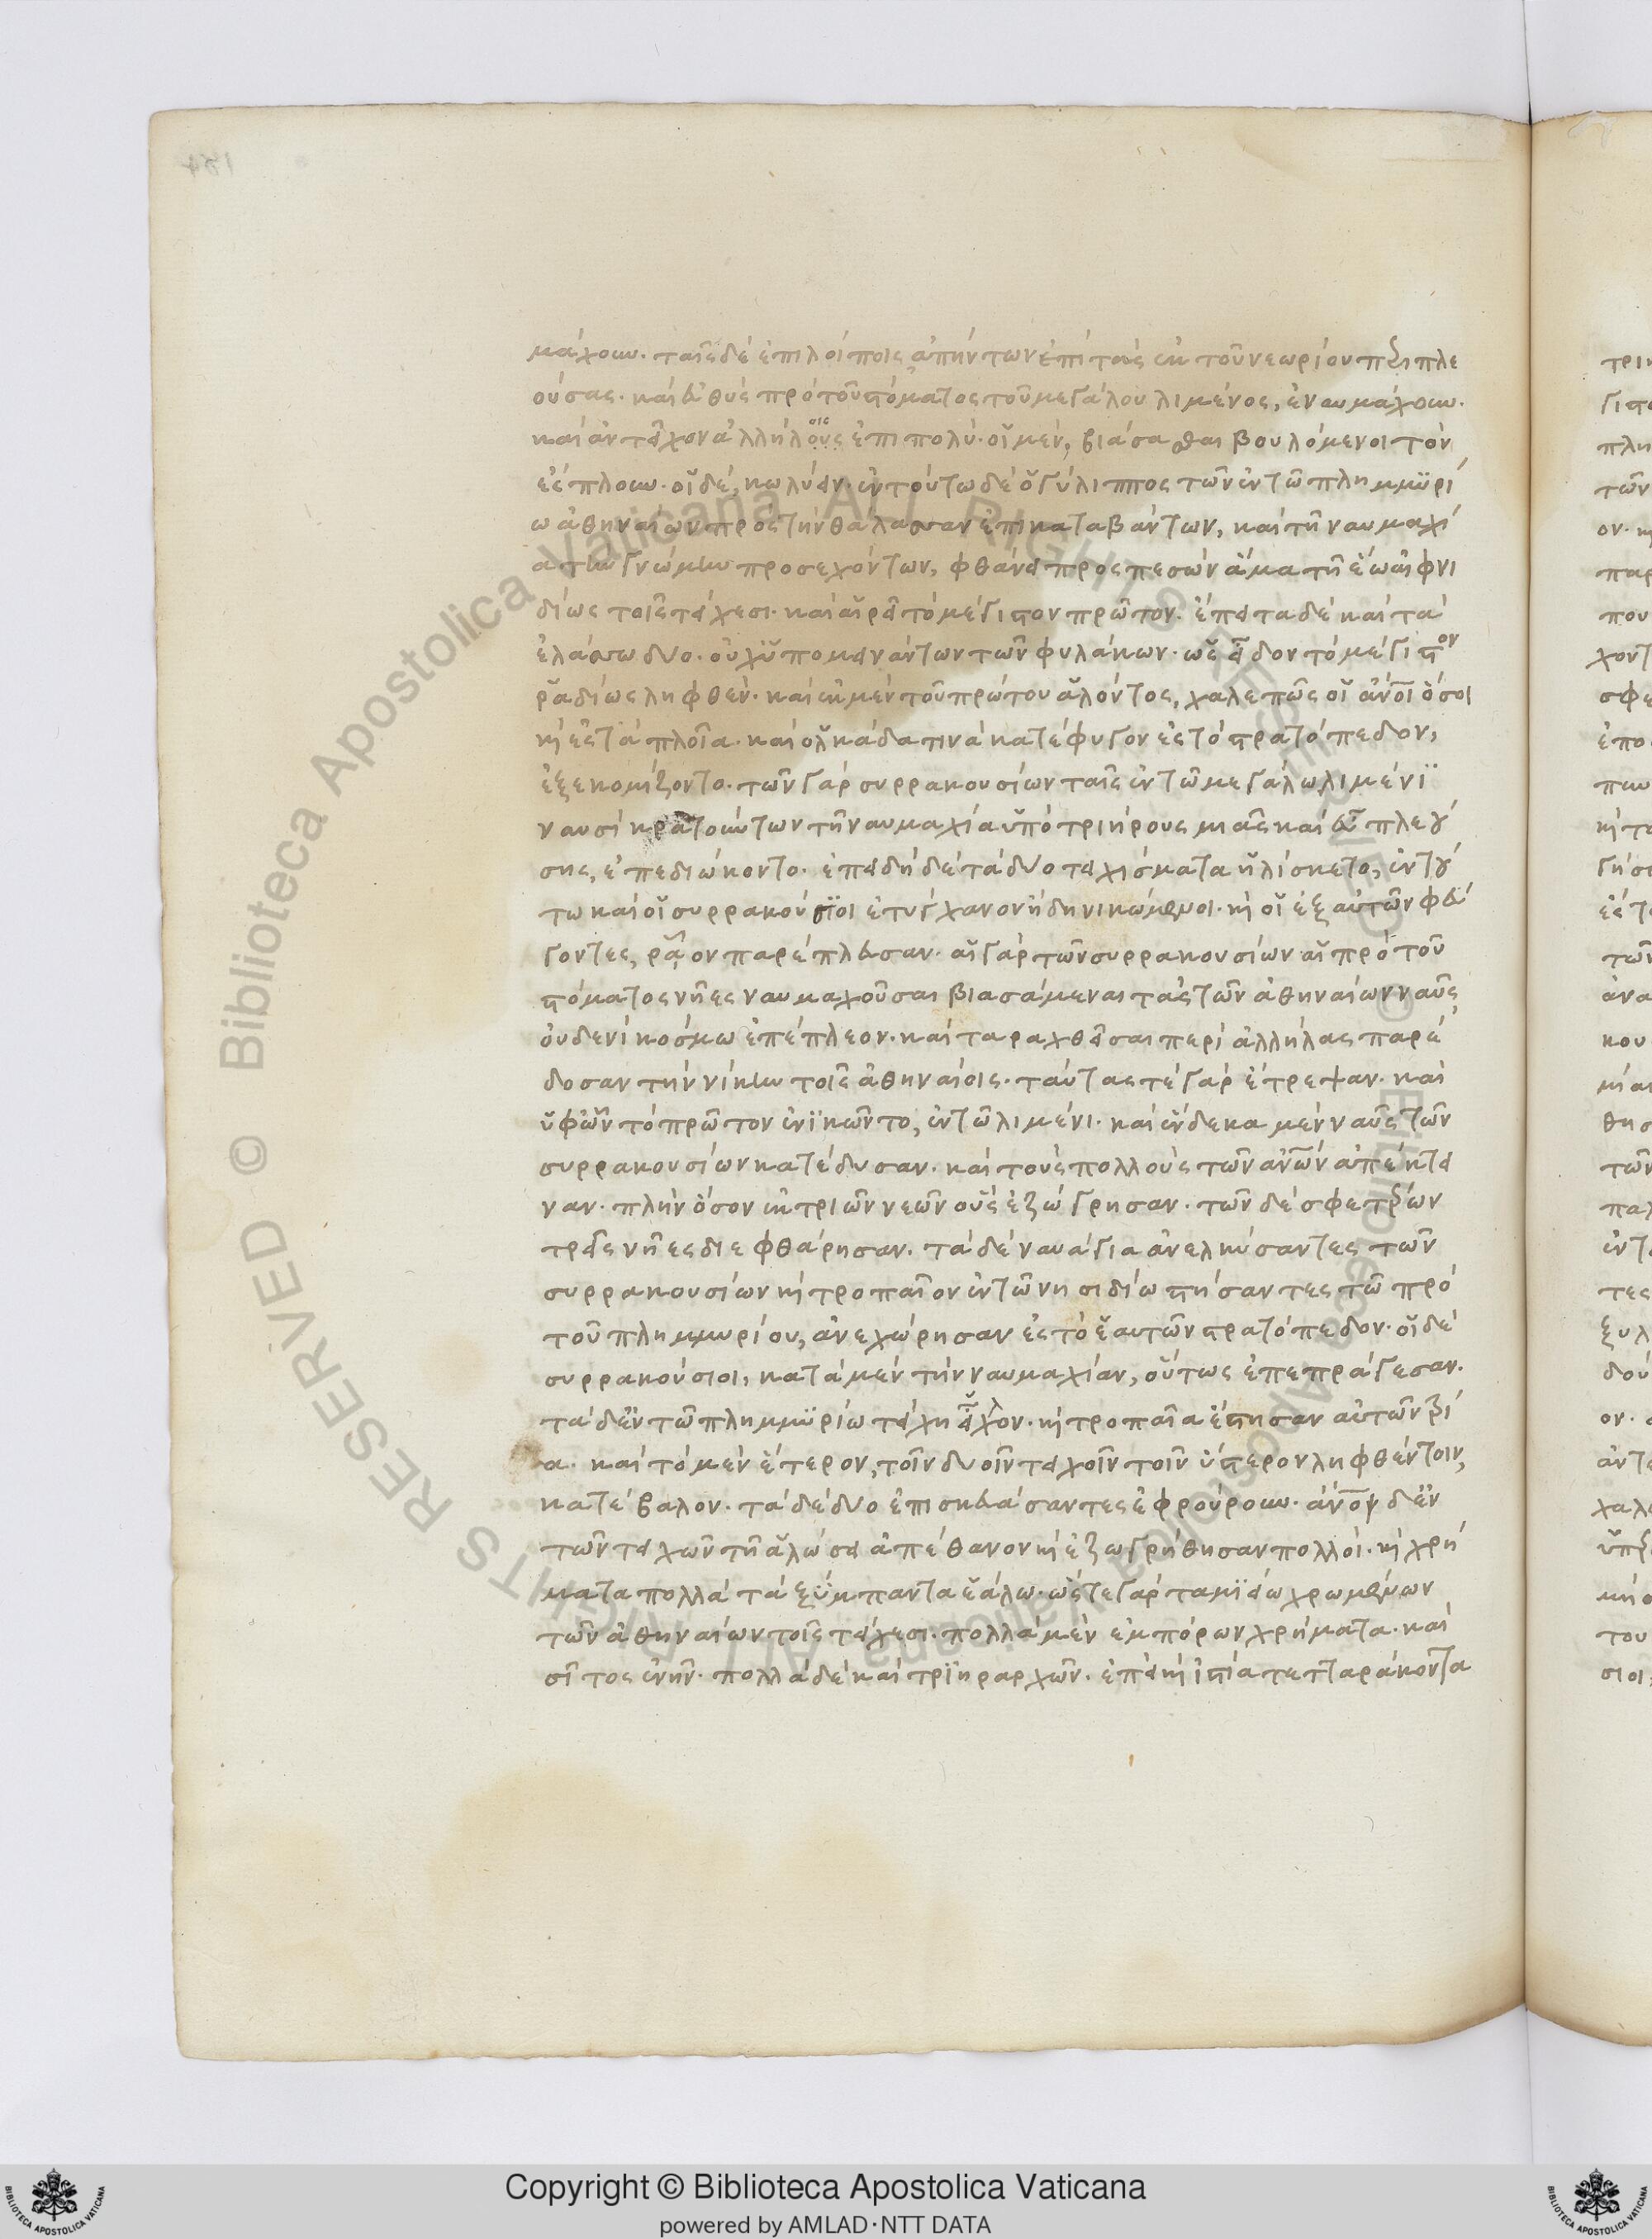 μάχουν. ταῖς δὲ ἐπιλοίποις ἀπήντων ἐπὶ τὰς ἐκ τοῦ νεωρίου περιπλε
ούσας. καὶ εὐθὺς πρὸ τοῦ στόματος τοῦ μεγάλου λιμένος, ἐναυμάχουν.
καὶ ἀντεῖχον ἀλλήλοις ἐπιπολύ. οἱ μὲν, βιάσασθαι βουλόμενοι τὸν
ἔσπλουν. οἱ δὲ, κωλύειν. ἐν τούτω δὲ ὁ γύλιππος τῶν ἐν τῶ πλημμϋρί
ω ἀθηναίων πρὸς τὴν θαλασσαν ἐπικαταβάντων, καὶ τῆ ναυμαχί
α τὴν γνώμην προσεχόντων, φθάνει προσπεσὼν ἅμα τῆ ἕω αἰφνι
δίως τοῖς τείχεσι. καὶ αἱρεῖ τὸ μέγιστον πρῶτον. ἔπειτα δὲ καὶ τὰ
ἐλάσσω δυο. οὐχ ὑπομεινάντων τῶν φυλάκων. ὡς εἶδον τὸ μέγιστον
ῥαδίως ληφθέν. καὶ ἐκ μὲν τοῦ πρώτου ἁλόντος, χαλεπῶς οἱ ἄνοι ὅσοι
κὶ ἐς τὰ πλοῖα. καὶ ὁλκάδα τινὰ κατέφυγον ἐς τὸ στρατόπεδον,
ἐξεκομίζοντο. τῶν γὰρ συρρακουσίων ταῖς ἐν τῶ μεγάλω λιμένϊ
ναυσὶ κρατούντων τῆ ναυμαχία ὑπὸ τριήρους μιᾶς καὶ εὖ πλεού
σης, ἐπεδιώκοντο. ἐπειδὴ δὲ τὰ δυο τειχίσματα ἡλίσκετο, ἐν τού
τω καὶ οἱ συρρακούσϊοι ἐτύγχανον ἤδη νικώμενοι. κὶ οἱ ἐξ αὐτῶν φεύ
γοντες, ῥᾶον παρέπλευσαν. αἱ γὰρ τῶν συρρακουσίων αἱ πρὸ τοῦ
στόματος νῆες ναυμαχοῦσαι βιασάμεναι τὰς τῶν ἀθηναίων ναῦς
οὐδενὶ κόσμω ἐπέπλεον. καὶ ταραχθεῖσαι περὶ ἀλλήλας παρέ
δοσαν τὴν νίκην τοῖς ἀθηναίοις. ταύτας τὲ γὰρ ἔτρεψαν. καὶ
ὑφῶν τὸ πρῶτον ἐνϊκῶντο, ἐν τῶ λιμένι. καὶ ἕνδεκα μὲν ναῦς τῶν
συρρακουσίων κατέδυσαν. καὶ τοὺς πολλοὺς τῶν ἀνων ἀπέκτει
ναν. πλὴν ὅσον ἐκ τριῶν νεῶν οὓς ἐζώγρησαν. τῶν δὲ σφετέρων
τρεῖς νῆες διεφθάρησαν. τὰ δὲ ναυάγια ἀνελκύσαντες τῶν
συρρακουσίων κὶ τροπαῖον ἐν τῶ νησιδίω στήσαντες τῶ πρὸ
τοῦ πλημμυρίου, ἀνεχώρησαν ἐς τὸ ἑαυτῶν στρατόπεδον. οἱ δὲ
συρρακούσιοι, κατὰ μὲν τὴν ναυμαχίαν, οὕτως ἐπεπράγεσαν.
τὰ δ' ἐν τῶ πλημμϋρίω τείχη εἶχον. κὶ τροπαῖα ἔστησαν αὐτῶν τρί
α. καὶ τὸ μὲν ἕτερον, τοῖν δυοῖν τειχοῖν τοῖν ὕστερον ληφθέντοιν,
κατέβαλον. τὰ δὲ δυο ἐπισκευάσαντες ἐφρούρουν. ἄνοι δ' ἐν
τῶν τειχῶν τῆ ἁλώσει ἀπέθανον κὶ ἐζωγρήθησαν πολλοί. κὶ χρή
ματα πολλὰ τὰ ξύμπαντα ἑάλω. ὥστε γὰρ ταμϊείω χρωμένων
τῶν ἀθηναίων τοῖς τείχεσι. πολλὰ μὲν ἐμπόρων χρήματα. καὶ
σῖτος ἐνῆν. πολλὰ δὲ καὶ τρϊηραρχῶν. ἐπεὶ κὶ ἱστία τετταράκοντα